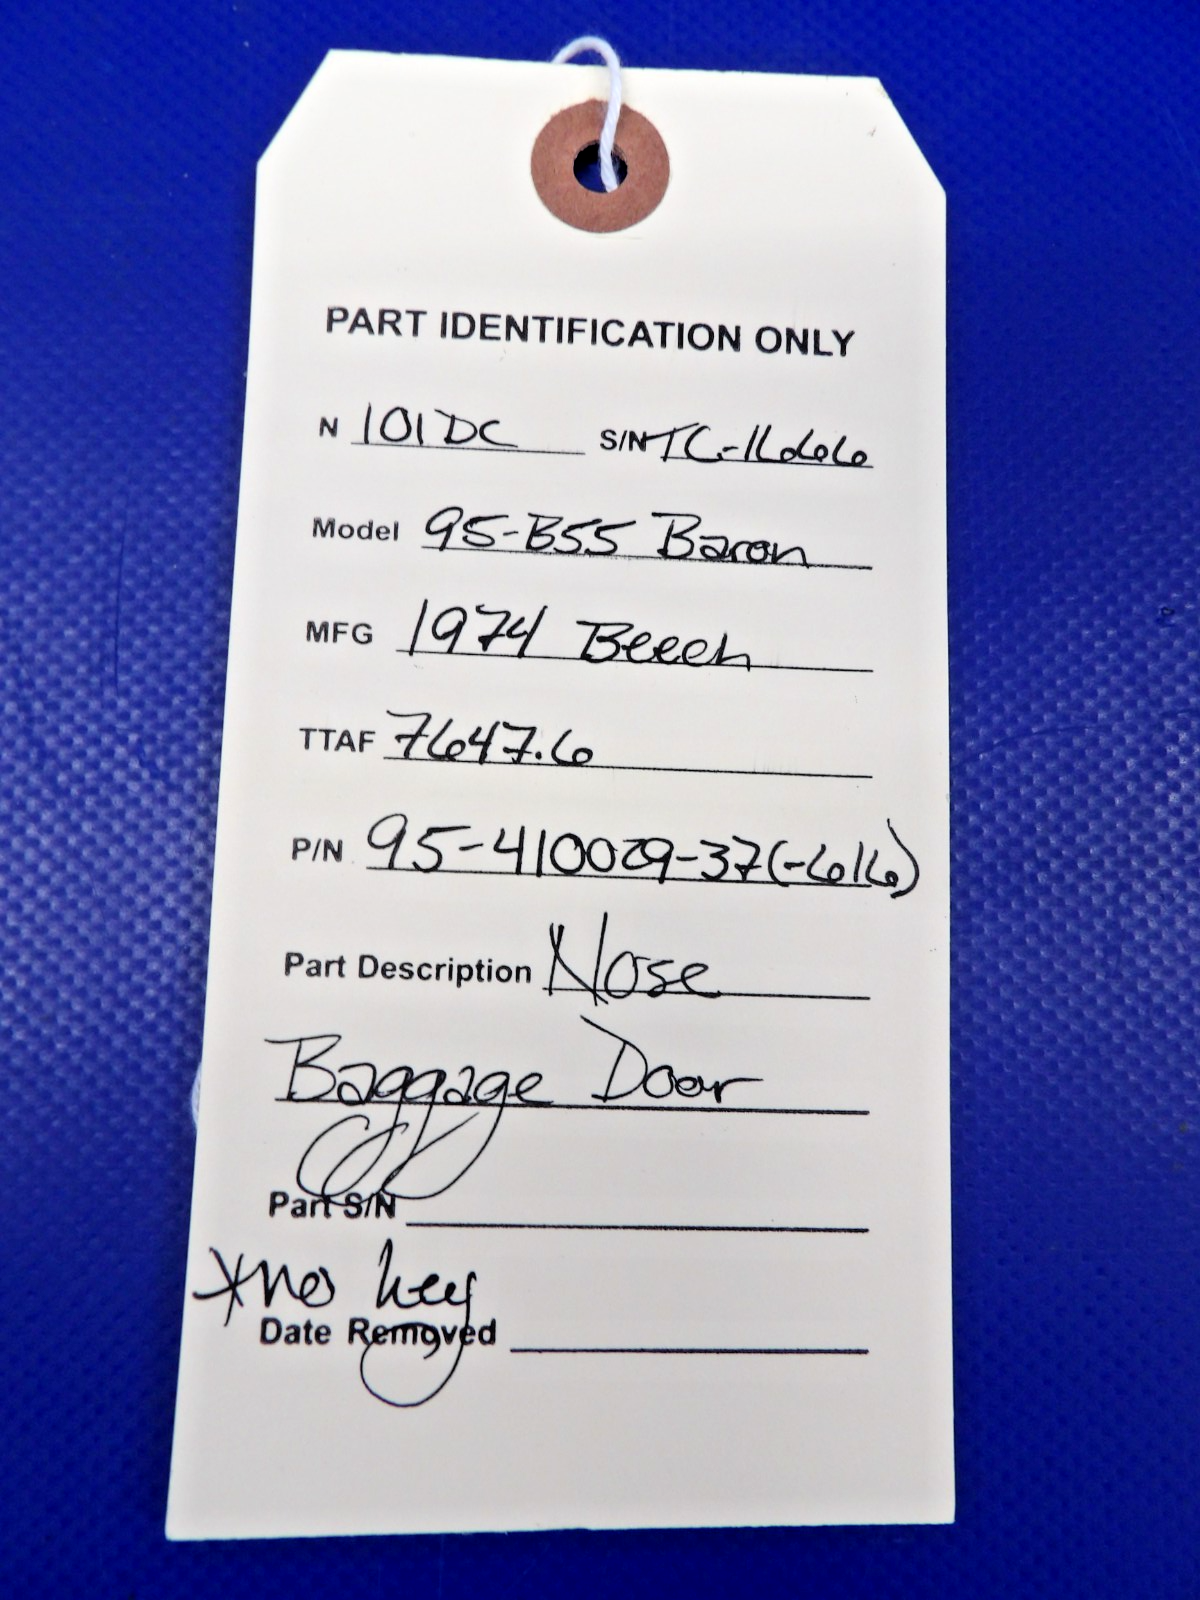 PART IDENTIFICATION ONLY
N 101DC S/N TC-1666
Model 95-B55 Baron
MFG 1974 Beech
TTAF 7647.6
P/N 95-410029-37(-616)
Part Description Nose
Baggage Door
Part S/N
*no key
Date Removed